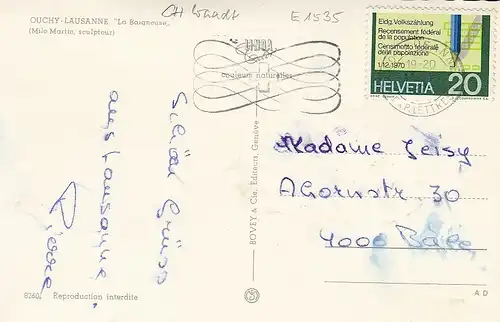 OUCHY-LAUSANNE "La Baigneuse"
(Milo Martin, sculpteur)
CH Waadt
E 1535
couleurs naturelles
Eidg. Volkszählung
Recensement fédéral
de la population
Censimento federale
della popolazione
1/12/1970
HELVETIA 20
19-20
Schöni Grüss
aus Lausanne
Pierre
BOVEY & Cie, Editeurs, Genève
Madame Jeisy
Ahornstr 30
4000 Bâle
8260 Reproduction interdite
A D